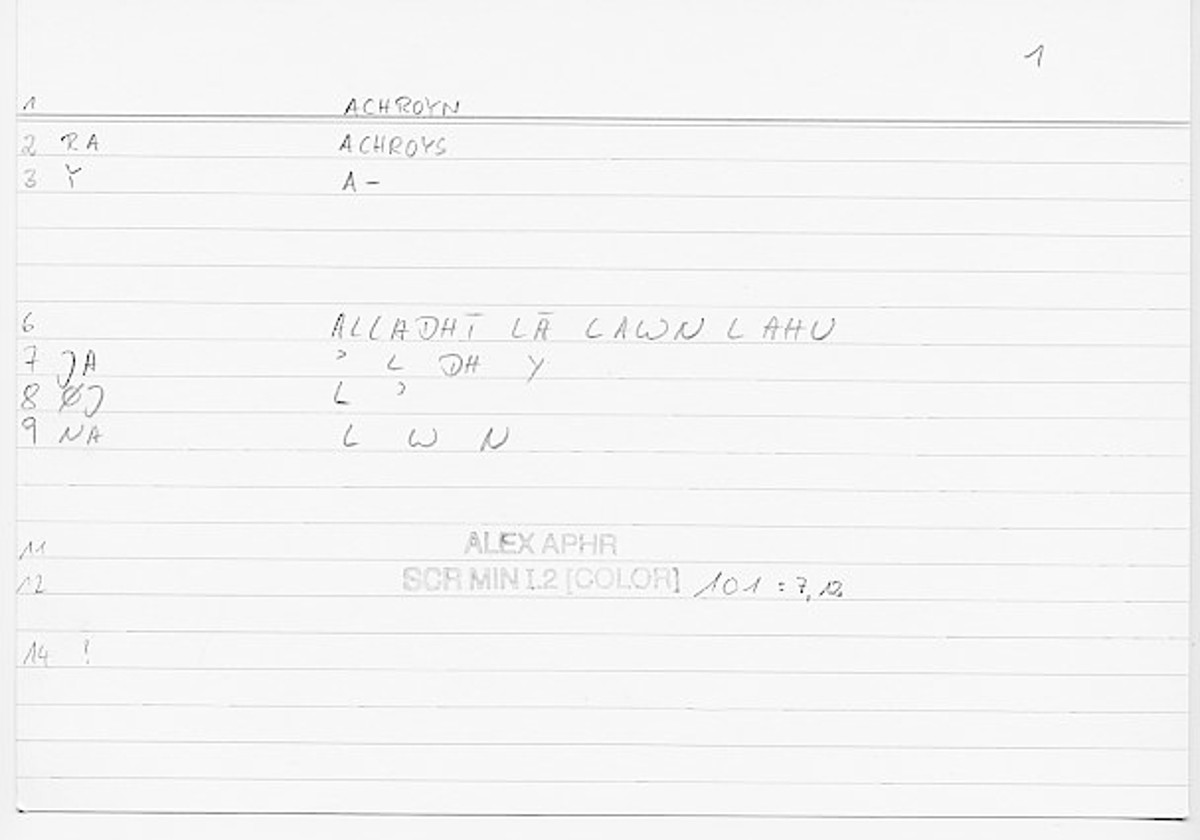 1
1 ACHROYN
2 RA ACHROYS
3 Y A-
6 ALLADHĪ LĀ LAWN LAHU
7 JA ʾ L DH Y
8 ØJ L ʾ
9 NA L W N
11 ALEX APHR
12 SCR MIN I.2 [COLOR] 101 : 7,
14 !